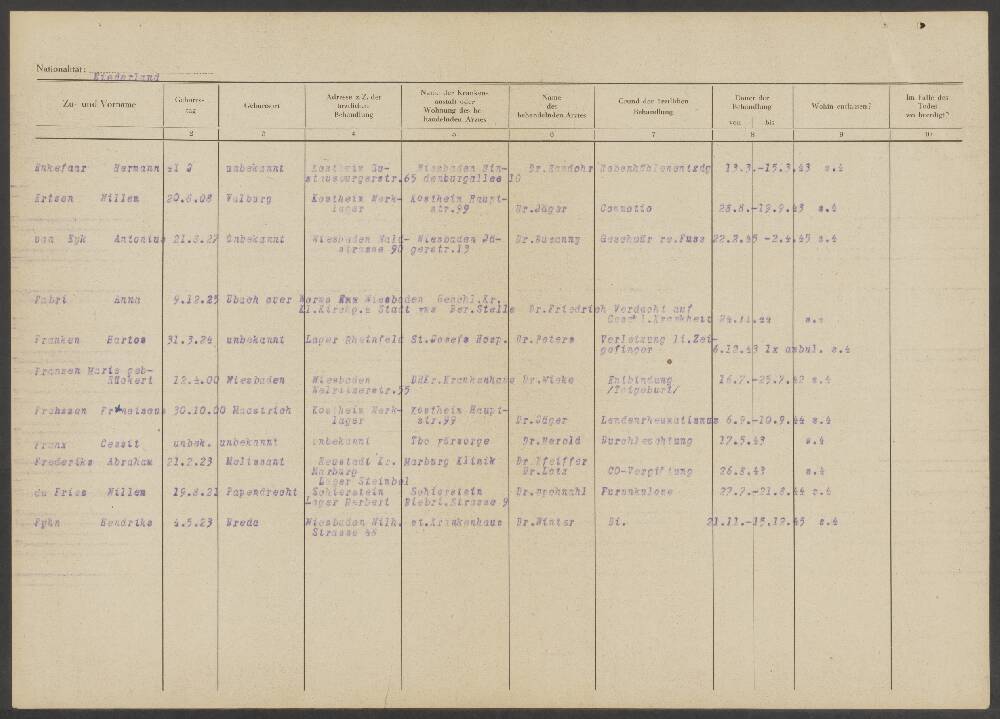 Nationalität: Niederland
Zu- und Vorname Geburts-tag Geburtsort Adresse z.Z. der ärztlichen Behandlung Name der Kranken-anstalt oder Wohnung des be-handelnden Arztes Name des behandelnden Arztes Grund der ärztlichen Behandlung Dauer der Behandlung von bis Wohin entlassen? Im Falle des Todes wo beerdigt?
2 3 4 5 6 7 8 9 10
Hermann unbekannt Kostheim Wiesbaden Hin- Dr. 13.3.-15.3.43 s.4
str.65 denburgallee 10
Willem 20.6.08 Kostheim Werk- Kostheim Haupt-
lager str.99 Dr.Jäger Comnotio 28.8.-19.9.43 s.4
van Eyk Antonius 21.3.27 Unbekannt Wiesbaden Wald- Wiesbaden Jä- Geschwür re.Fuss 22.2.45 -2.4.45 s.4
strasse 90 gerstr.13
Fabri Anna 9.12.25 Ubach over Worms Wiesbaden Geschl.Kr.
Kl.Kirchg.2 Stadt Ber.Stelle Dr.Friedrich Verdacht auf
Geschl.Krankheit 24.11.44 s.4
Franken Bartos 31.3.24 unbekannt Lager Rheinfeld St.Josefs Hosp. Dr.Peters Verletzung li.Zei-
gefinger 6.12.43 1x ambul. s.4
Franzen Marie geb-
Rückert 12.4.00 Wiesbaden Wiesbaden Dr.Wieke Entbindung 16.7.-25.7.42 s.4
Walramerstr.35 /Totgeburt/
30.10.00 Maastrich Kostheim Werk- Kostheim Haupt-
lager str.99 Dr.Jäger Lendenrheumatismus 6.9.-10.9.44 s.4
Franx unbek. unbekannt unbekannt Tbc Fürsorge Dr.Herold Durchleuchtung 17.5.43 s.4
Frederiks Abraham 21.2.23 Melissant Neustadt Kr. Marburg Klinik Dr.Pfeiffer
Marburg Dr.Lotz CO-Vergiftung 26.8.43 s.4
Lager Steinbel
de Fries Willem 19.8.21 Papendrecht Schierstein Schierstein Furunkulose 27.7.-21.8.44 s.4
Lager Herbert Biebr.Strasse 9
Hendriks 4.5.23 Breda Wiesbaden Wilh. st.Krankenhaus Dr.Winter Di. 21.11.-15.12.45 s.4
Strasse 48